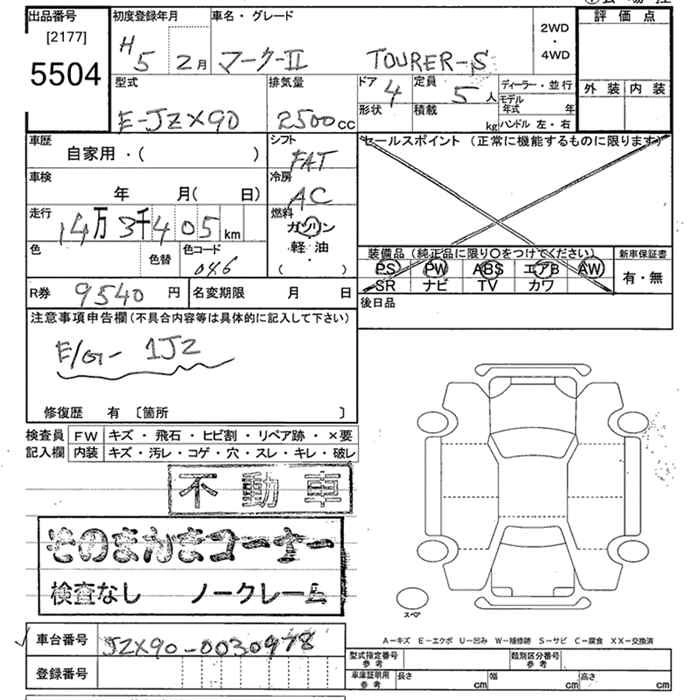 出品番号
[2177]
5504
初度登録年月
H5 2月
車名・グレード
マークⅡ TOURER-S
2WD
・
4WD
評価点
外装 内装
型式
E-JZX90
排気量
2500cc
ドア 4
形状
定員 5人
積載 kg
ディーラー・並行
モデル年式 年
ハンドル 左・右
車歴
自家用・( )
シフト
FAT
セールスポイント (正常に機能するものに限ります)
車検
年 月( 日)
冷房
AC
走行
14万3千405km
燃料
ガソリン
軽・油
・
( )
色
色替
色コード
046
装備品 (純正品に限り〇をつけてください)
PS PW ABS エアB AW
SR ナビ TV カワ
新車保証書
有・無
R券 9540円
名変期限 月 日
後日品
注意事項申告欄(不具合内容等は具体的に記入して下さい)
E/G- 1JZ
修復歴 有 〔箇所 〕
検査員 FW キズ・飛石・ヒビ割・リペア跡・×要
記入欄 内装 キズ・汚レ・コゲ・穴・スレ・キレ・破レ
不動車
そのまんまコーナー
検査なし ノークレーム
スペア
A-キズ E-エクボ U-凹み W-補修跡 S-サビ C-腐食 XX-交換済
車台番号 JZX90-0030978
登録番号
型式指定番号
参考
類別区分番号
参考
車庫証明用
参考
長さ cm 幅 cm 高さ cm